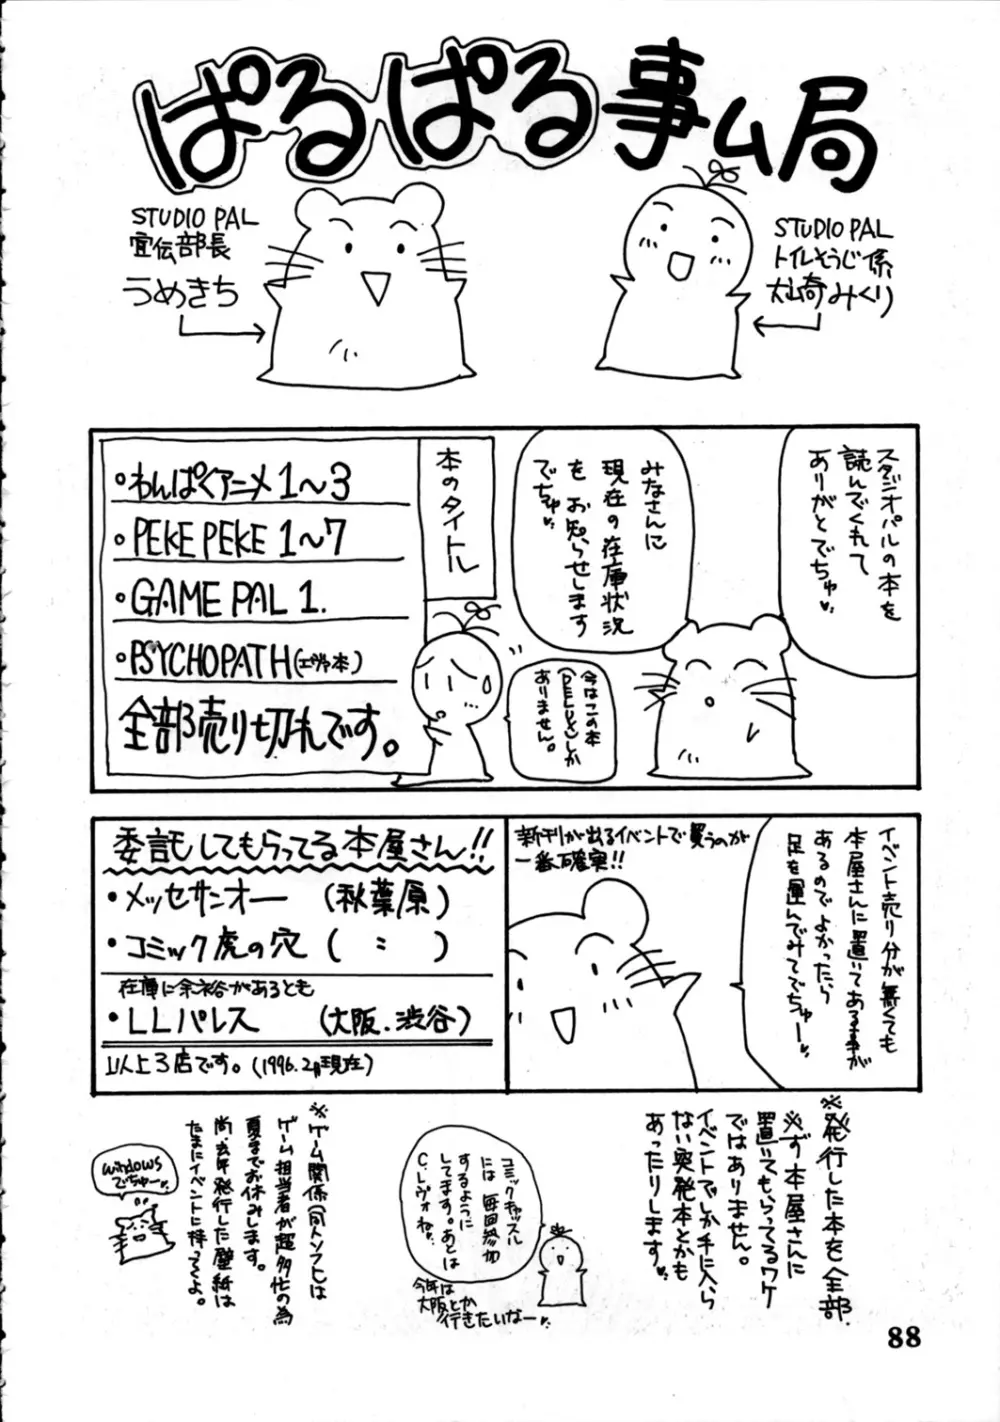 ぱるぱる事ム局
STUDIO PAL
宣伝部長
うめきち
STUDIO PAL
トイレそうじ係
犬山奇みくり
スタジオパルの本を
読んでくれて
ありがとでちゅ
みなさんに
現在の在庫状況
をお知らせします
でちゅ
本のタイトル
・わんぱくアニメ1〜3
・PEKE PEKE 1〜7
・GAME PAL 1.
・PSYCHOPATH(エヴァ本)
全部売り切れです。
今はこの本
(DELUX)しか
ありません。
イベント売り分が無くても
本屋さんに置いてある事が
あるのでよかったら
足を運んでみてでちゅー
新刊が出るイベントで買うのが
一番確実!!
委託してもらってる本屋さん!!
・メッセサンオー (秋葉原)
・コミック虎の穴 ( 〃 )
在庫に余裕があるとも
・LLパレス (大阪.渋谷)
以上3店です。(1996.2月現在)
※発行した本を全部
※ず本屋さんに
置いてもらってるワケ
ではありません。
イベントでしか手に入ら
ない突発本とかも
あったりします
コミックキャッスル
には毎回参加
するように
してます。あとは
C.レヴォね。
今年は
大阪とか
行きたいなー
※ゲーム関係(同人ソフト)は
ゲーム担当者が超多忙の為
夏までお休みします。
尚、去年発行した壁紙は
たまにイベントに持ってくよ。
windows
でちゅー
88